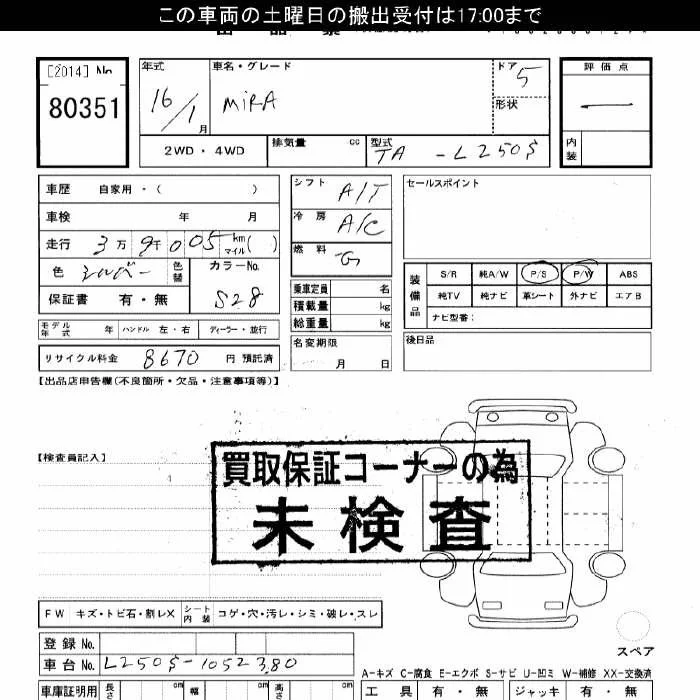 この車両の土曜日の搬出受付は17:00まで
[2014] No
80351
年式 16/1 月
車名・グレード MiRA
ドア 5
形状
評価点 —
内装
2WD・4WD
排気量 cc
型式 TA - L250S
車歴 自家用・( )
車検 年 月
走行 3万 9千 005 km マイル ( )
色 シルバー 色替
カラーNo. S28
保証書 有・無
シフト A/T
冷房 A/C
燃料 G
乗車定員 名
積載量 kg
総重量 kg
セールスポイント
装備品
S/R 純A/W P/S P/W ABS
純TV 純ナビ 革シート 外ナビ エアB
ナビ型番:
モデル年式 年 ハンドル 左・右 ディーラー・並行
リサイクル料金 8670 円 預託済
名変期限 月 日
後日品
【出品店申告欄(不良箇所・欠品・注意事項等)】
【検査員記入】
買取保証コーナーの為
未検査
FW キズ・トビ石・割レX シート内装 コゲ・穴・汚レ・シミ・破レ・スレ
スペア
登録 No.
車台 No. L250S-1052380
A-キズ C-腐食 E-エクボ S-サビ U-凹ミ W-補修 XX-交換済
車庫証明用 長さ cm 幅 cm 高さ cm
工具 有・無 ジャッキ 有・無